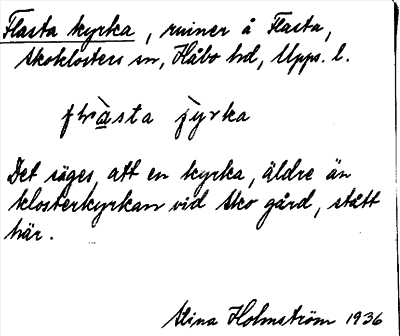 Flasta kyrka, ruiner å Flasta,
Skoklosters sn, Håbo hd, Upps. l.
flràsta jyrka
Det säges, att en kyrka, äldre än
klosterkyrkan vid Sko gård, stått
här.
Stina Holmström 1936